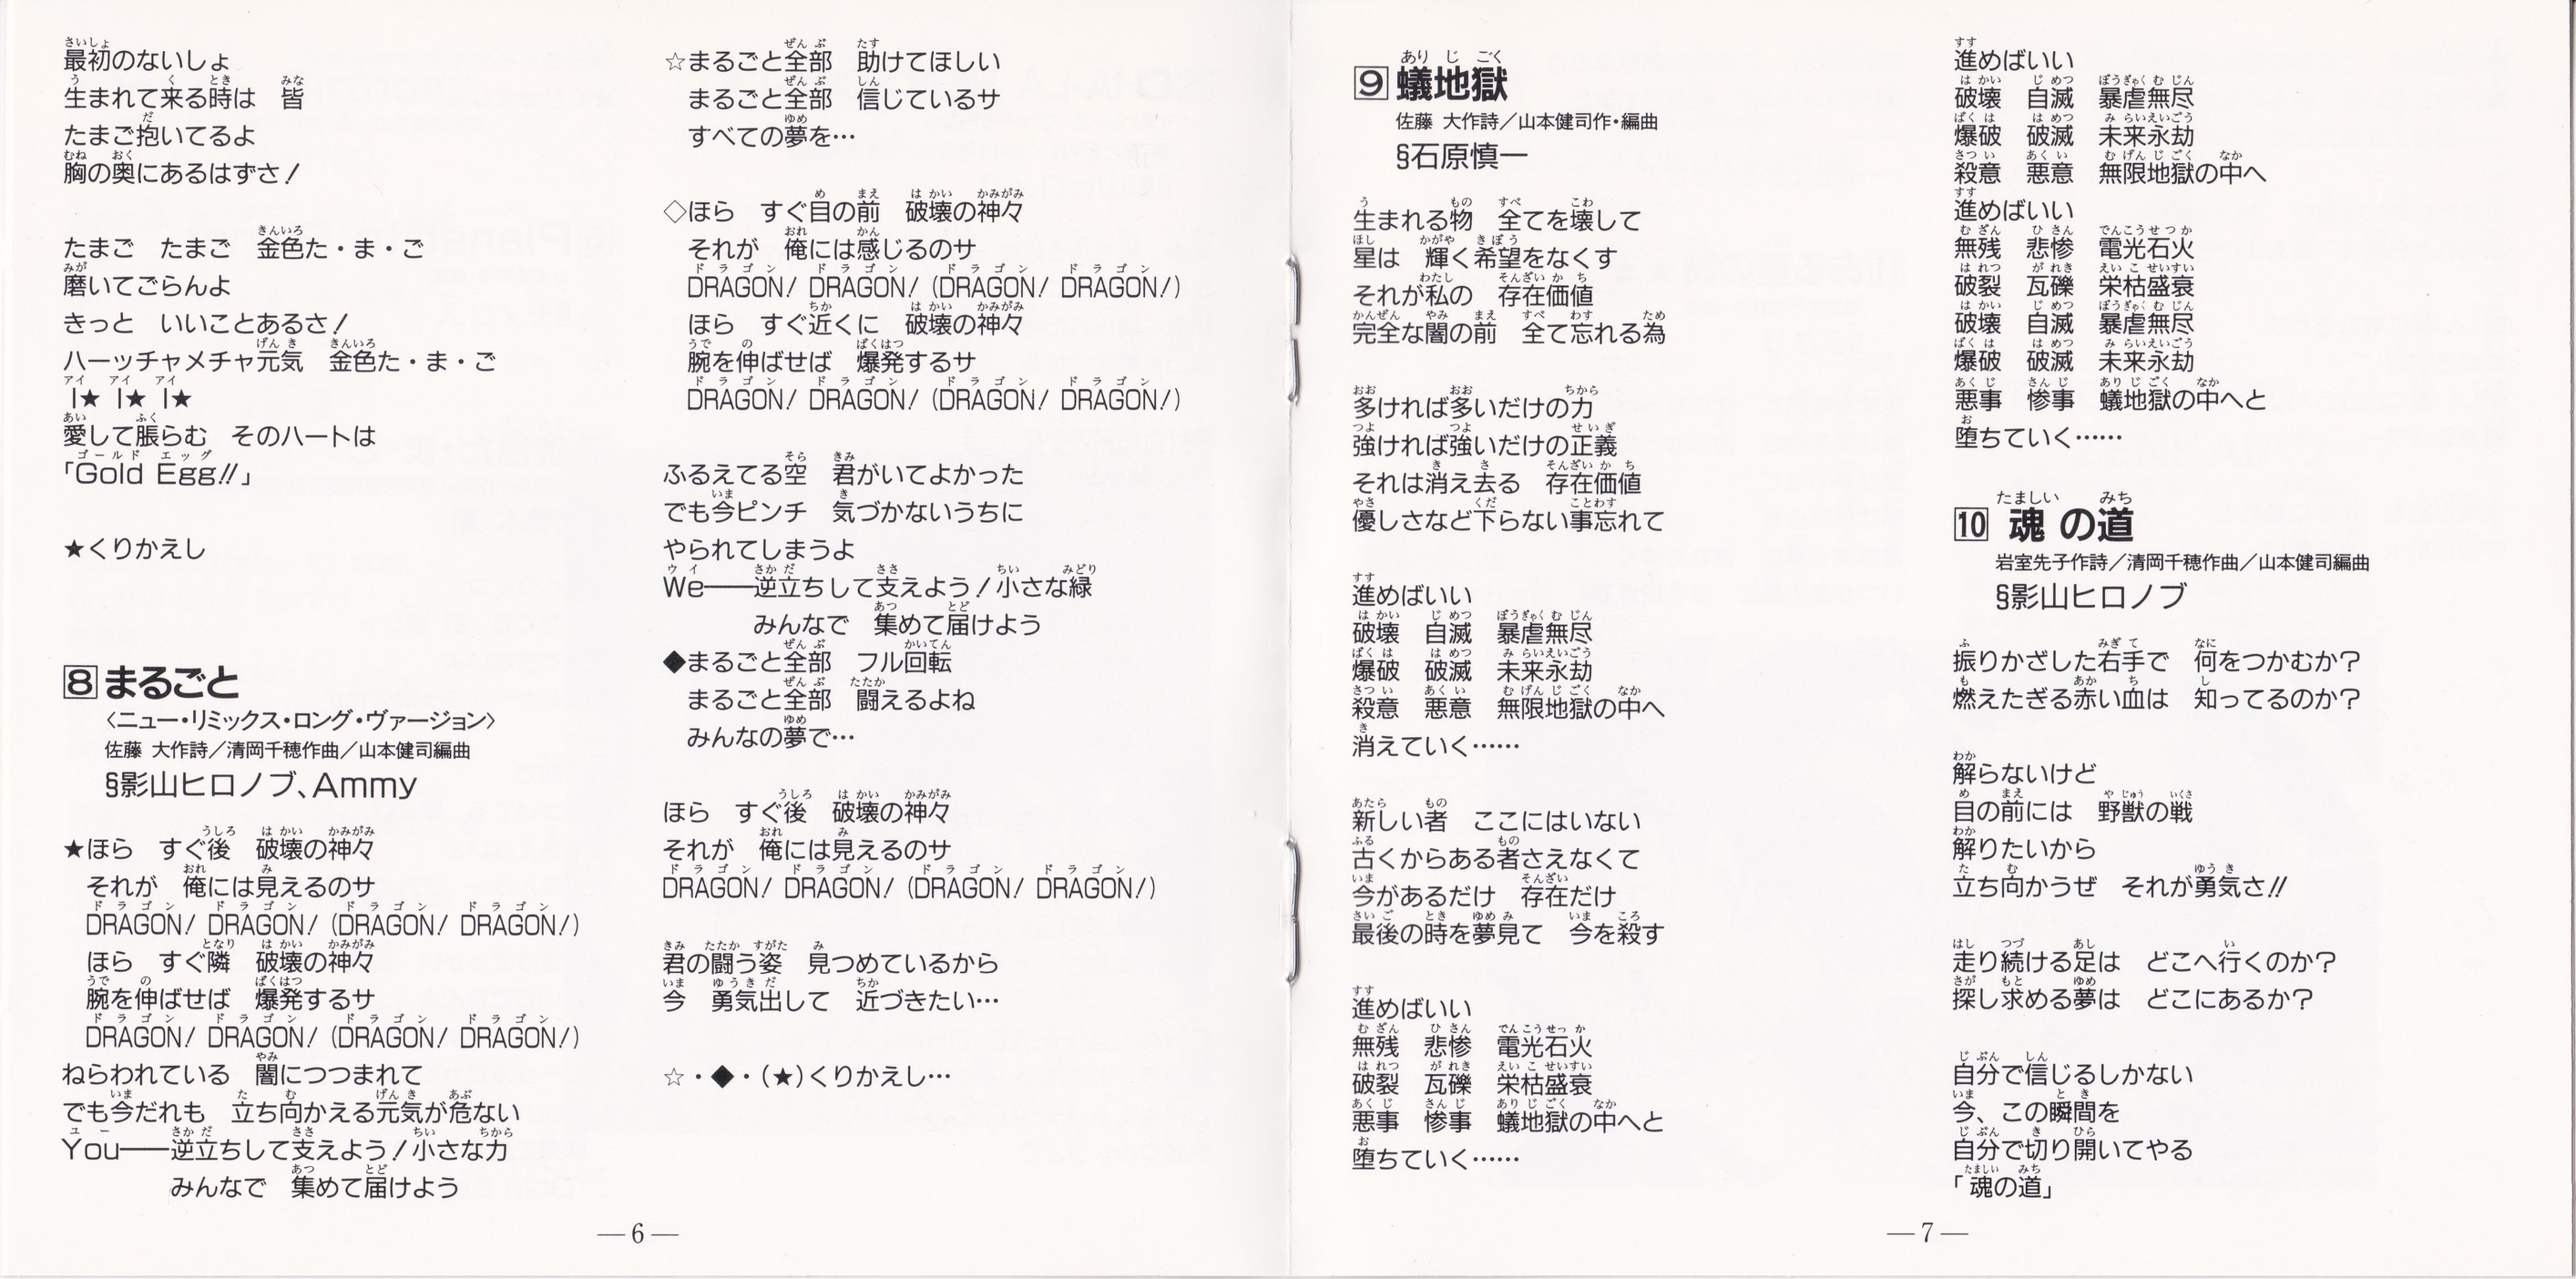 最初のないしょ
生まれて来る時は　皆
たまご抱いてるよ
胸の奥にあるはずさ！
たまご　たまご　金色た・ま・ご
磨いてごらんよ
きっと　いいことあるさ！
ハーッチャメチャ元気　金色た・ま・ご
I★ I★ I★
愛して脹らむ　そのハートは
「Gold Egg!!」
★くりかえし
8 まるごと
〈ニュー・リミックス・ロング・ヴァージョン〉
佐藤 大作詩／清岡千穂作曲／山本健司編曲
§影山ヒロノブ、Ammy
★ほら　すぐ後　破壊の神々
それが　俺には見えるのサ
DRAGON! DRAGON! (DRAGON! DRAGON!)
ほら　すぐ隣　破壊の神々
腕を伸ばせば　爆発するサ
DRAGON! DRAGON! (DRAGON! DRAGON!)
ねらわれている　闇につつまれて
でも今だれも　立ち向かえる元気が危ない
You――逆立ちして支えよう！小さな力
みんなで　集めて届けよう
☆まるごと全部　助けてほしい
まるごと全部　信じているサ
すべての夢を…
◇ほら　すぐ目の前　破壊の神々
それが　俺には感じるのサ
DRAGON! DRAGON! (DRAGON! DRAGON!)
ほら　すぐ近くに　破壊の神々
腕を伸ばせば　爆発するサ
DRAGON! DRAGON! (DRAGON! DRAGON!)
ふるえてる空　君がいてよかった
でも今ピンチ　気づかないうちに
やられてしまうよ
We――逆立ちして支えよう！小さな緑
みんなで　集めて届けよう
◆まるごと全部　フル回転
まるごと全部　闘えるよね
みんなの夢で…
ほら　すぐ後　破壊の神々
それが　俺には見えるのサ
DRAGON! DRAGON! (DRAGON! DRAGON!)
君の闘う姿　見つめているから
今　勇気出して　近づきたい…
☆・◆・(★)くりかえし…
―6―
9 蟻地獄
佐藤 大作詩／山本健司作・編曲
§石原慎一
生まれる物　全てを壊して
星は　輝く希望をなくす
それが私の　存在価値
完全な闇の前　全て忘れる為
多ければ多いだけの力
強ければ強いだけの正義
それは消え去る　存在価値
優しさなど下らない事忘れて
進めばいい
破壊　自滅　暴虐無尽
爆破　破滅　未来永劫
殺意　悪意　無限地獄の中へ
消えていく……
新しい者　ここにはいない
古くからある者さえなくて
今があるだけ　存在だけ
最後の時を夢見て　今を殺す
進めばいい
無残　悲惨　電光石火
破裂　瓦礫　栄枯盛衰
悪事　惨事　蟻地獄の中へと
堕ちていく……
進めばいい
破壊　自滅　暴虐無尽
爆破　破滅　未来永劫
殺意　悪意　無限地獄の中へ
進めばいい
無残　悲惨　電光石火
破裂　瓦礫　栄枯盛衰
破壊　自滅　暴虐無尽
爆破　破滅　未来永劫
悪事　惨事　蟻地獄の中へと
堕ちていく……
10 魂の道
岩室先子作詩／清岡千穂作曲／山本健司編曲
§影山ヒロノブ
振りかざした右手で　何をつかむか？
燃えたぎる赤い血は　知ってるのか？
解らないけど
目の前には　野獣の戦
解りたいから
立ち向かうぜ　それが勇気さ!!
走り続ける足は　どこへ行くのか？
探し求める夢は　どこにあるか？
自分で信じるしかない
今、この瞬間を
自分で切り開いてやる
「魂の道」
―7―